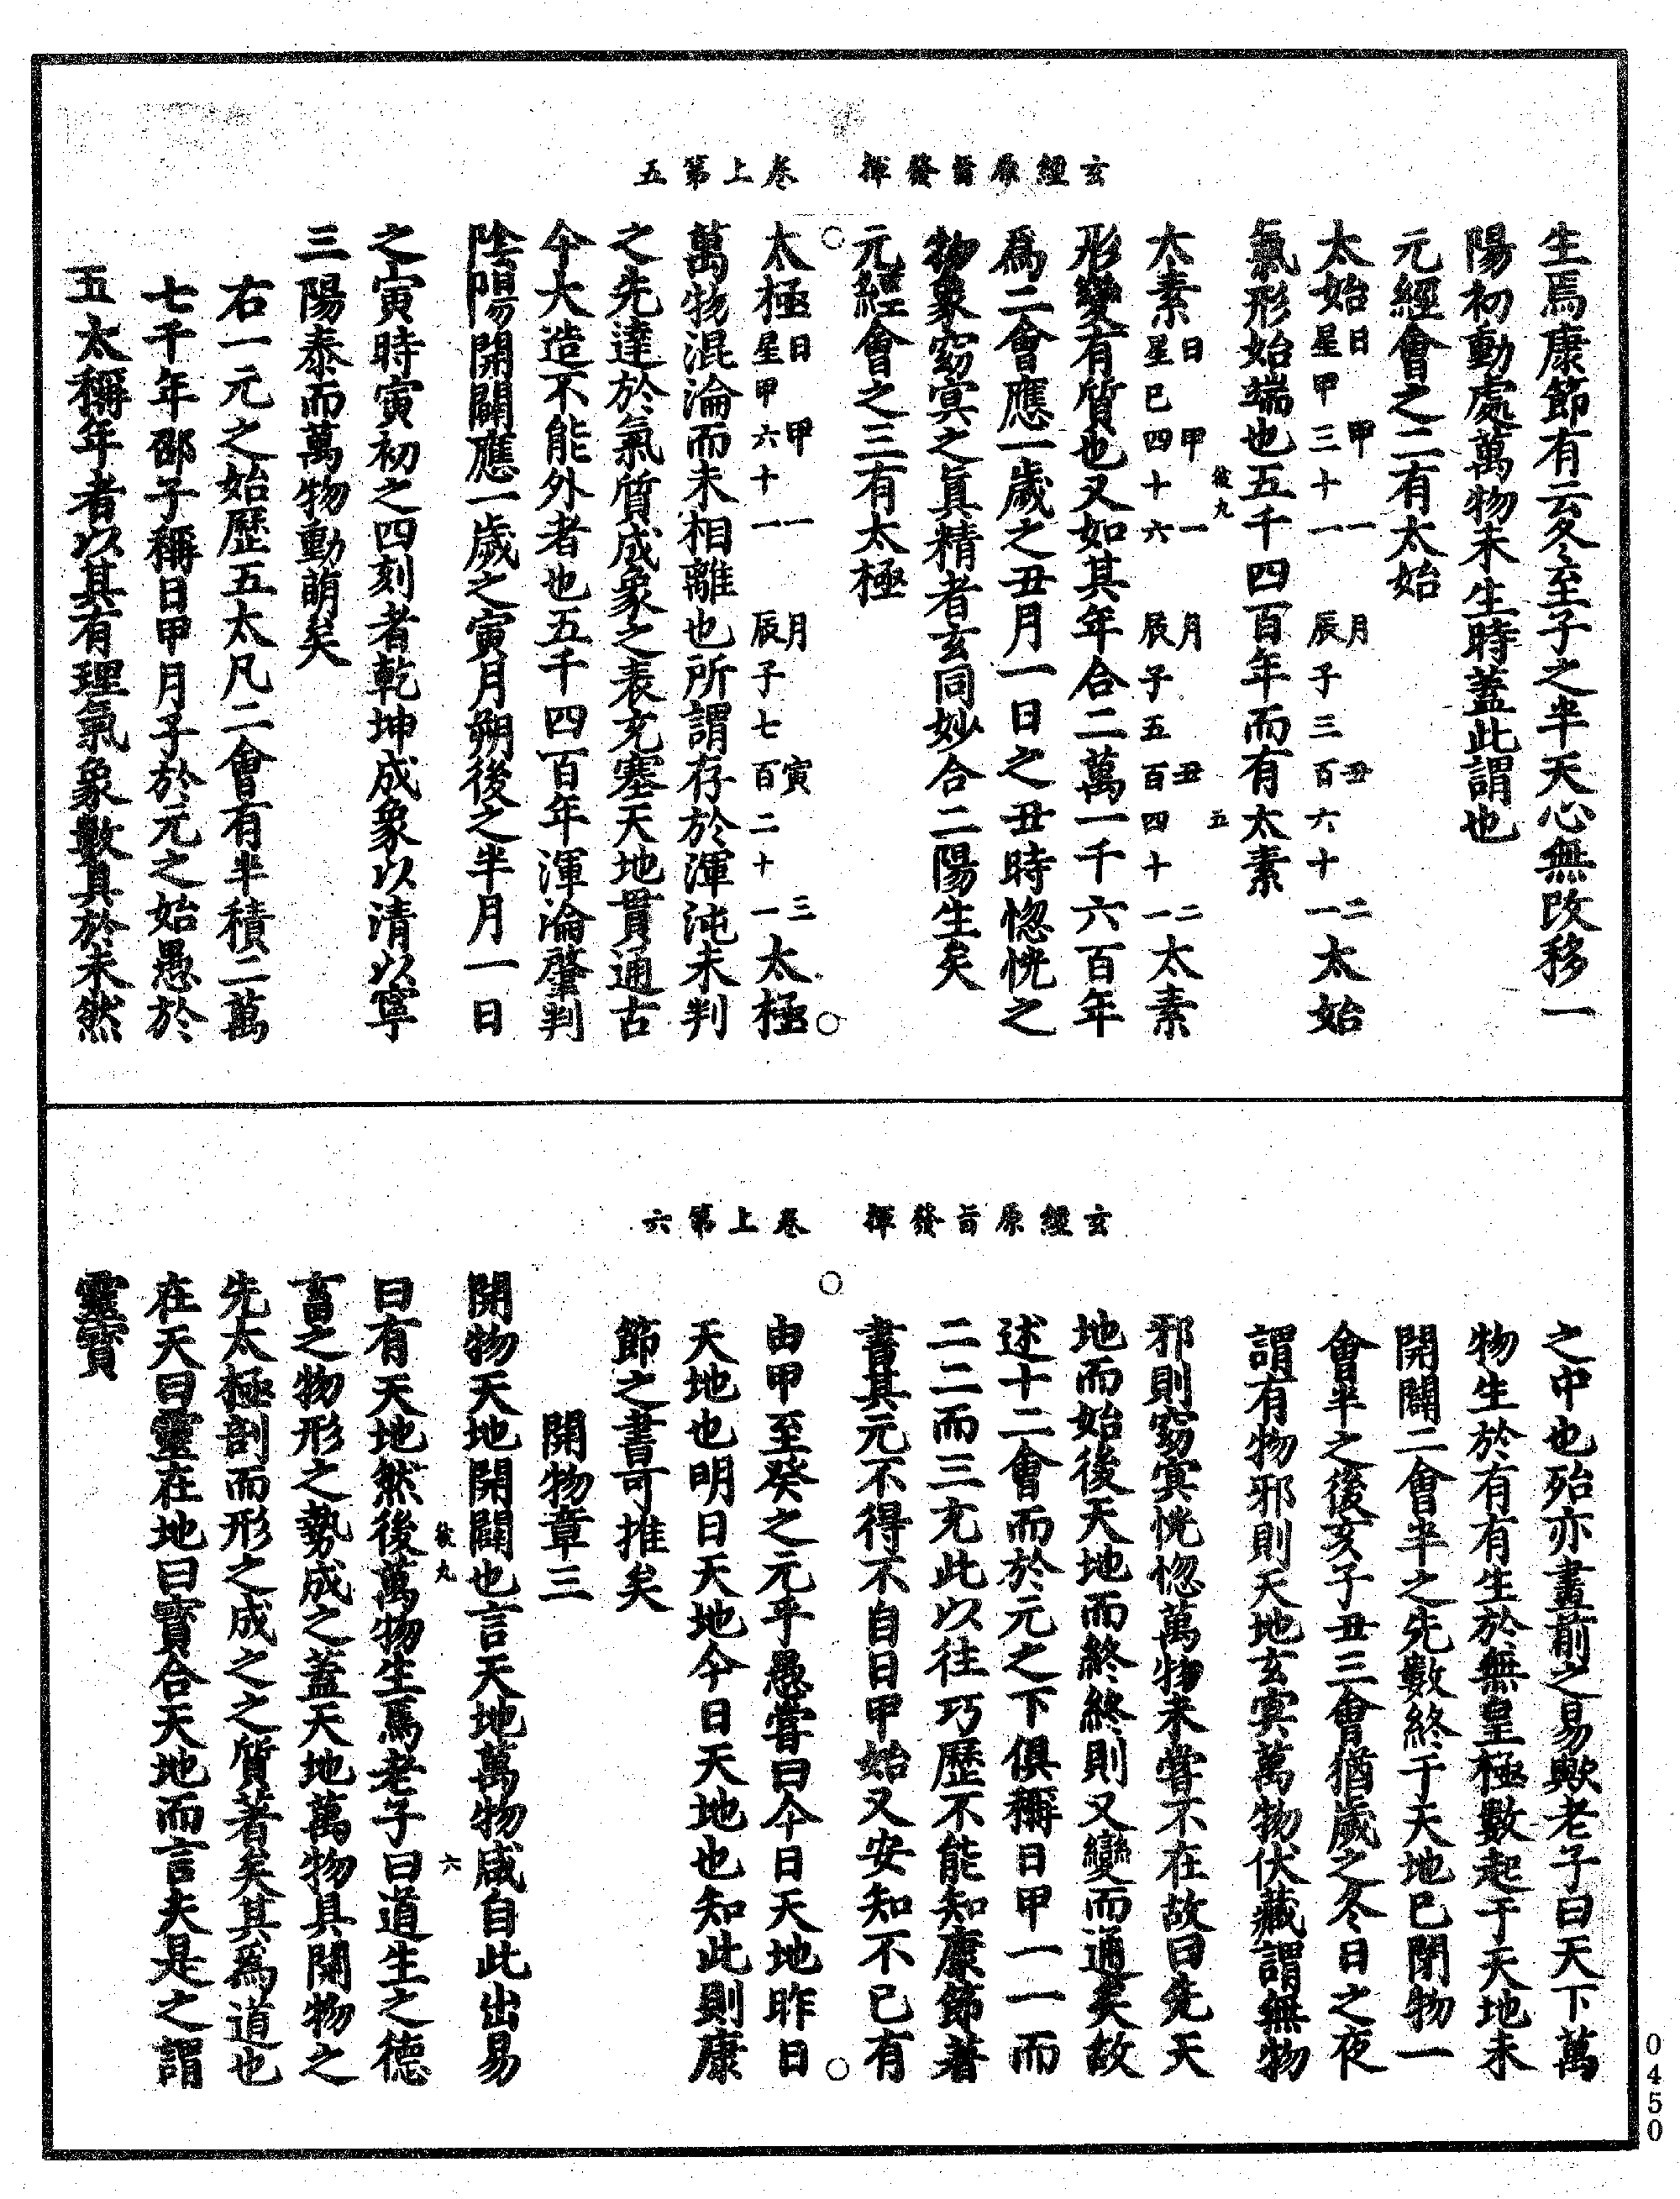 玄經原旨發揮　卷上第五
生焉康節有云冬至子之半天心無改移一
陽初動處萬物未生時蓋此謂也
元經會之二有太始
太始日甲一月丑二星甲三十一辰子三百六十一太始
氣形始端也五千四百年而有太素
彼九　五
太素日甲一月丑二星巳四十六辰子五百四十一太素
形變有質也又如其年合二萬一千六百年
爲二會應一歲之丑月一日之丑時惚恍之
物象窈冥之眞精者玄同妙合二陽生矣
元經會之三有太極
太極日甲一月寅三星甲六十一辰子七百二十一太極
萬物混淪而未相離也所謂存於渾沌未判
之先達於氣質成象之表充塞天地貫通古
今大造不能外者也五千四百年渾淪肇判
陰陽開闢應一歲之寅月朔後之半月一日
之寅時寅初之四刻者乾坤成象以清以寧
三陽泰而萬物動萌矣
右一元之始歷五太凡二會有半積二萬
七千年邵子稱日甲月子於元之始愚於
五太稱年者以其有理氣象數具於未然
玄經原旨發揮　卷上第六
之中也殆亦畫前之易歟老子曰天下萬
物生於有有生於無皇極數起于天地未
開闢二會半之先數終于天地已閉物一
會半之後亥子丑三會猶歲之冬日之夜
謂有物邪則天地玄冥萬物伏藏謂無物
邪則窈冥恍惚萬物未嘗不在故曰先天
地而始後天地而終終則又變而通矣故
述十二會而於元之下俱稱日甲一一而
二二而三充此以往巧歷不能知康節著
書其元不得不自日甲始又安知不已有
由甲至癸之元乎愚嘗曰今日天地昨日
天地也明日天地今日天地也知此則康
節之書可推矣
開物章三
開物天地開闢也言天地萬物咸自此出易
彼九　六
曰有天地然後萬物生焉老子曰道生之德
畜之物形之勢成之蓋天地萬物具開物之
先太極剖而形之成之之質著矣其爲道也
在天曰靈在地曰寶合天地而言夫是之謂
靈寶
0450